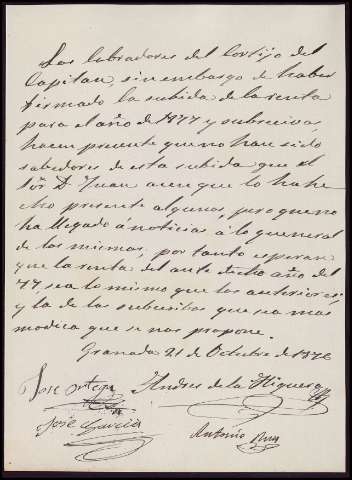 Los labradores del Cortijo del
Capitan, sin embargo de haber
firmado la subida de la renta
para el año de 1877 y subcecivos,
hacen presente que no han sido
sabedores de esta subida que el
Sôr D. Juan acen que lo ha he
cho presente algunos, pero que no
ha llegado á noticias á lo gueneral
de los mismos, por tanto esperan
que la renta del ante dicho año del
77, sea lo mismo que los anteriores;
y la de los subcesibos que sea mas
modica que se nos propone.
Granada 21 de Octubre de 1876
Jose Ortega Andres de la Higuera
José Garcia Antonio Ruiz